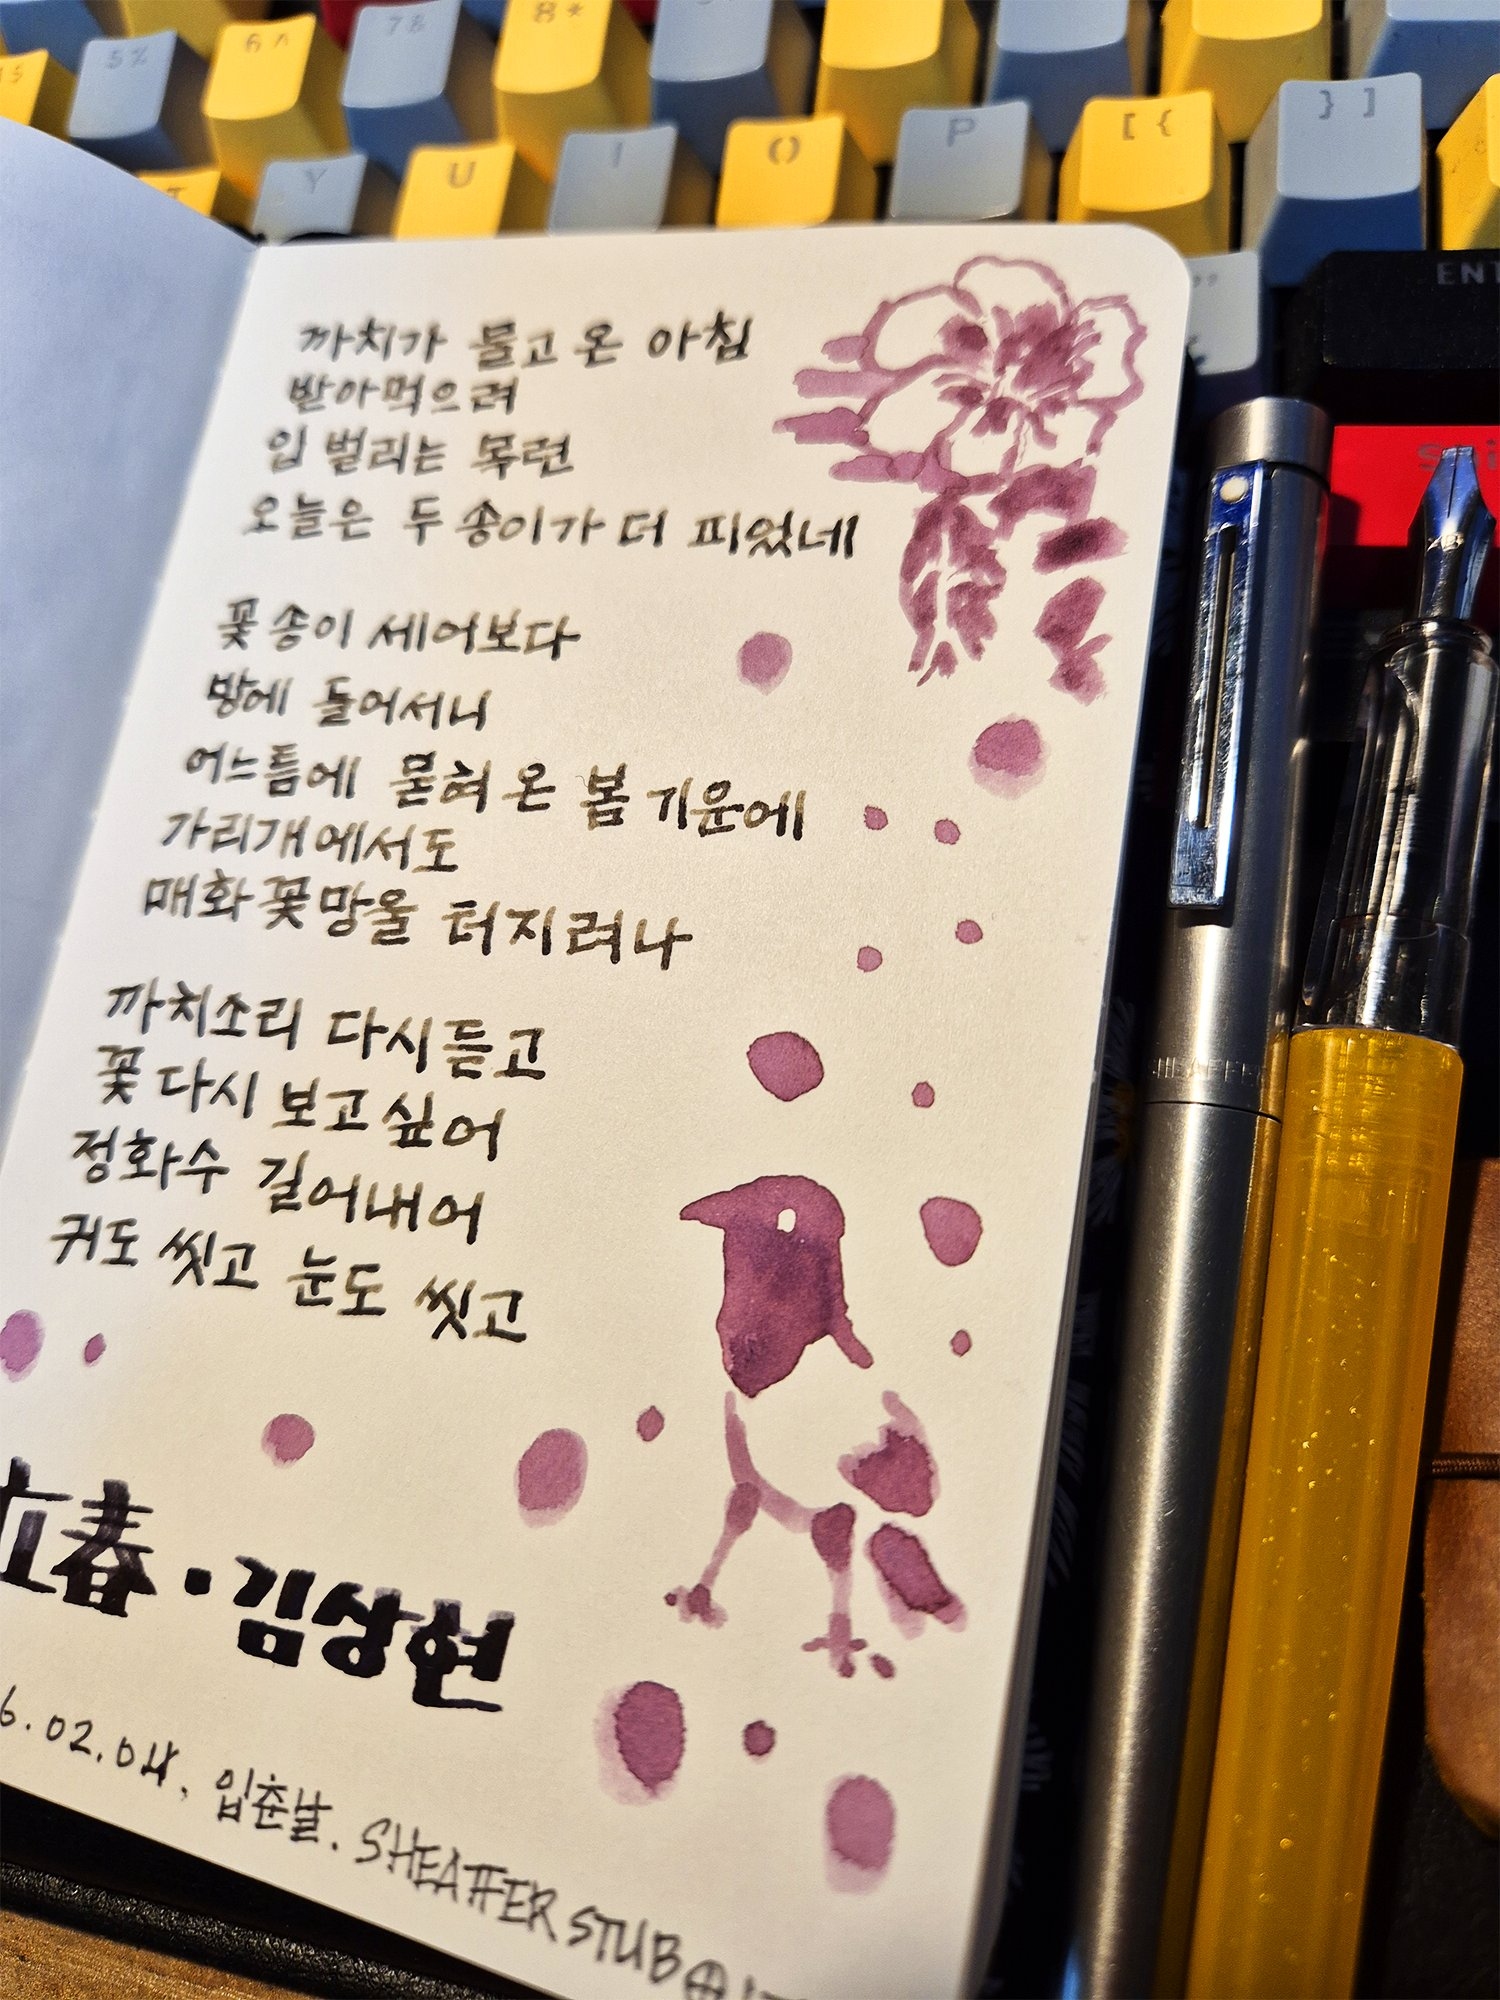 5%
6^
7&
8*
Y
U
I
O
P
[ {
} ]
ENT
까치가 물고 온 아침
받아먹으려
입 벌리는 목련
오늘은 두 송이가 더 피었네
꽃송이 세어보다
방에 들어서니
어느틈에 묻혀 온 봄 기운에
가리개에서도
매화꽃망울 터지려나
까치소리 다시듣고
꽃 다시 보고싶어
정화수 길어내어
귀도 씻고 눈도 씻고
立春 · 김상현
6.02.04. 입춘날. SHEAFFER STUB
SHEAFFER